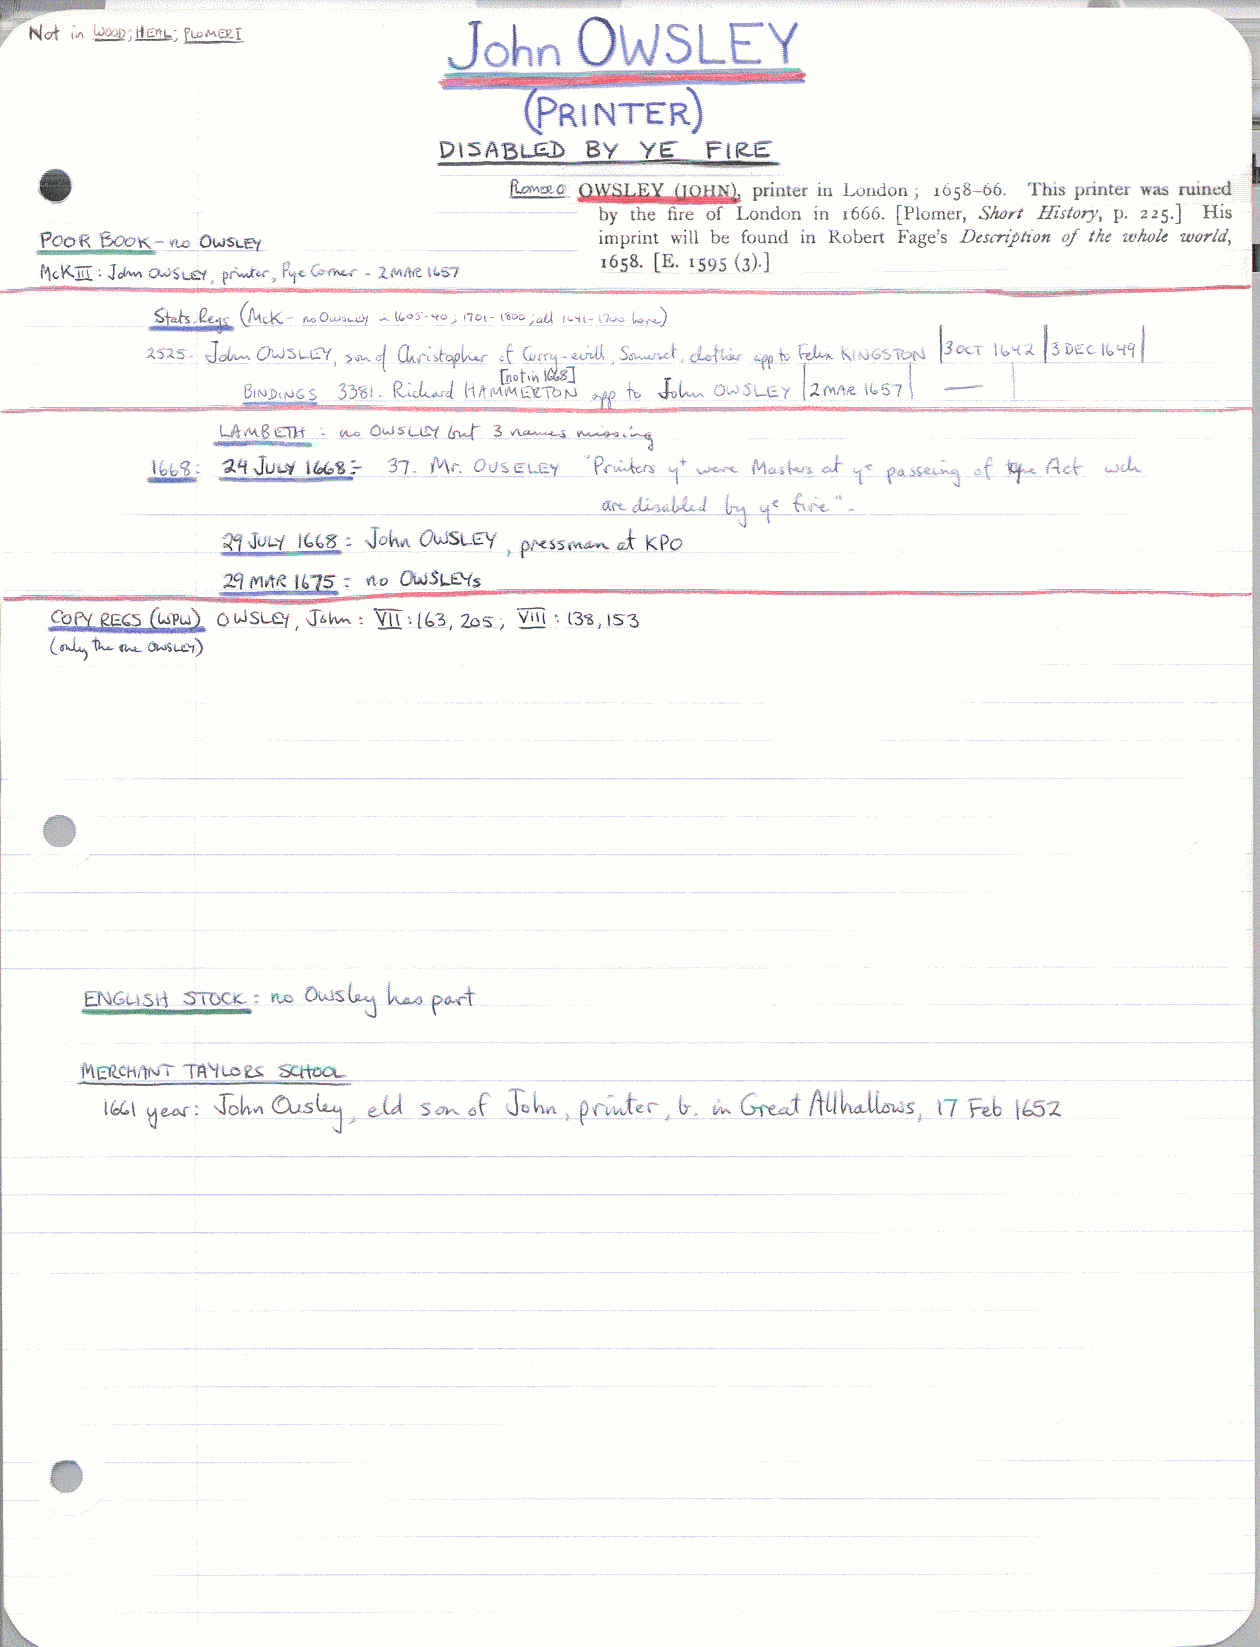 Not in WOOD; HEAL; PLOMER I
John OWSLEY
(PRINTER)
DISABLED BY YE FIRE
PLOMER O OWSLEY (JOHN), printer in London; 1658–66. This printer was ruined
by the fire of London in 1666. [Plomer, Short History, p. 225.] His
imprint will be found in Robert Fage's Description of the whole world,
1658. [E. 1595 (3).]
POOR BOOK - no OWSLEY
McK III: John OWSLEY, printer, Pye Corner - 2 MAR 1657
Stats. Regs (McK - no OWSLEY in 1605-40; 1701-1800; all 1641-1700 here)
2525. John OWSLEY, son of Christopher of Curry-evill, Somerset, clothier app to Felix KINGSTON | 3 OCT 1642 | 3 DEC 1649 |
[not in 1668]
BINDINGS 3381. Richard HAMMERTON app to John OWSLEY | 2 MAR 1657 | — |
LAMBETH: no OWSLEY but 3 names missing
1668: 24 JULY 1668:- 37. Mr. OUSELEY "Printers yt were Masters at ye passeing of ye Act wch
are disabled by ye fire".
29 JULY 1668: John OWSLEY, pressman at KPO
29 MAR 1675: no OWSLEYs
COPY REGS (WPW) OWSLEY, John: VII: 163, 205; VIII: 138, 153
(only the one OWSLEY)
ENGLISH STOCK: no Owsley has part
MERCHANT TAYLORS SCHOOL
1661 year: John Ousley, eld son of John, printer, b. in Great Allhallows, 17 Feb 1652